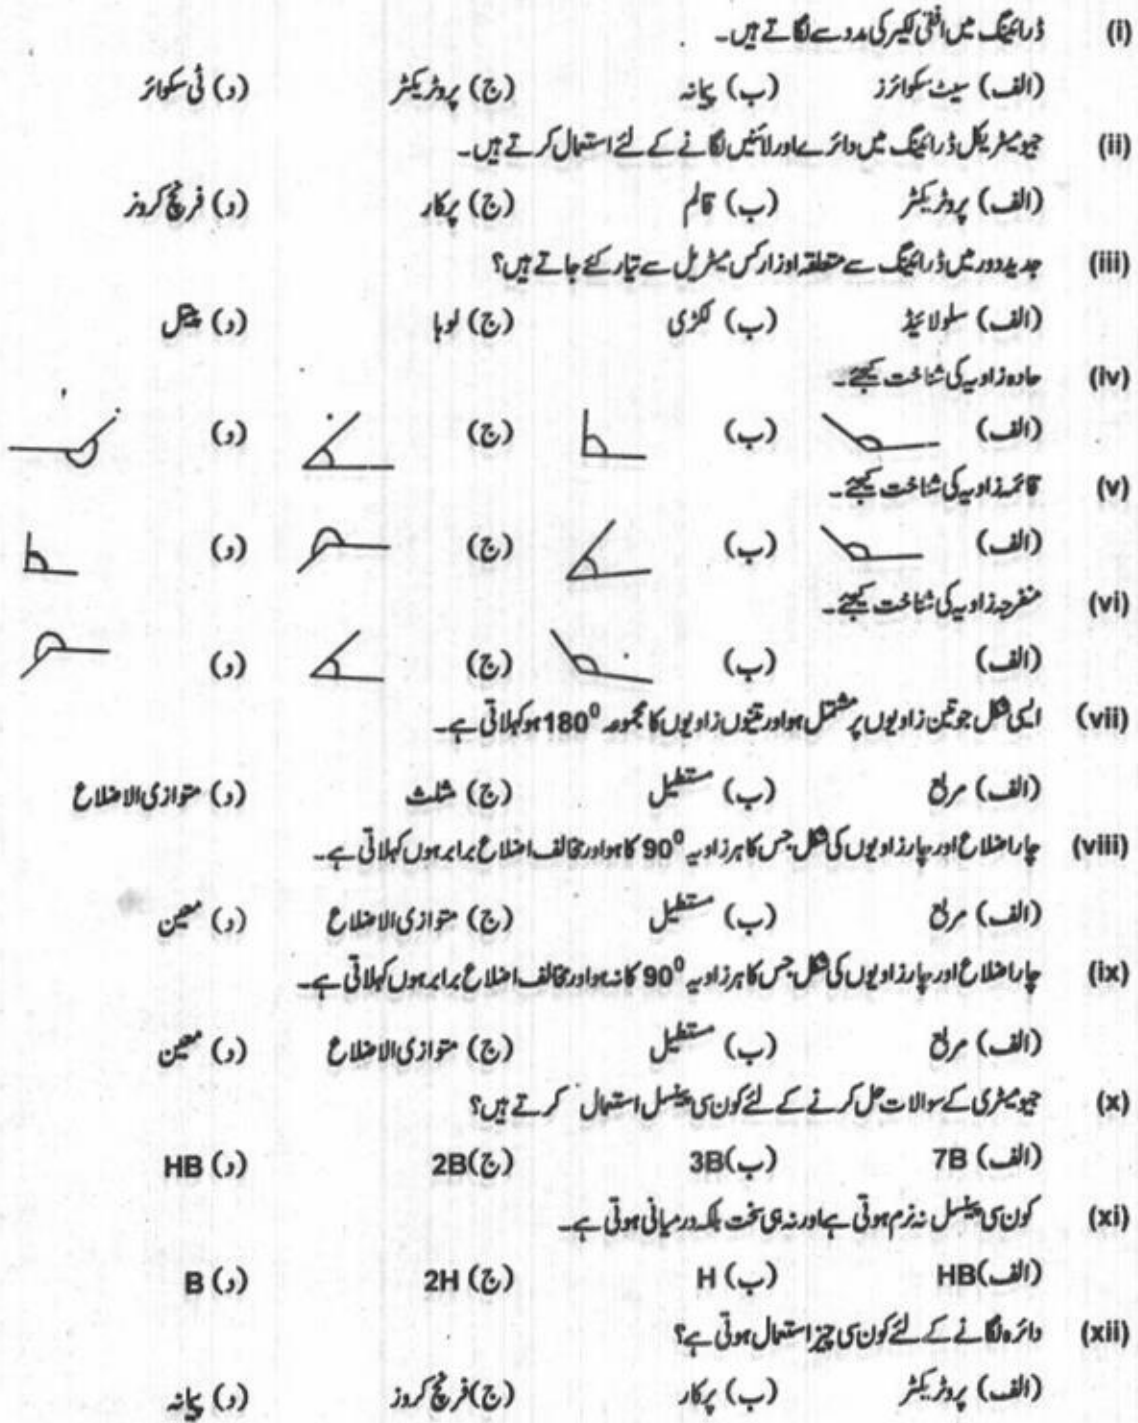 (i) ڈرائینگ میں افقی لکیر کی مدد سے لگاتے ہیں۔
(الف) سیٹ سکوائرز (ب) پیمانہ (ج) پروٹریکٹر (د) ٹی سکوائر
(ii) جیومیٹریکل ڈرائینگ میں دائرے اور لائنیں لگانے کے لئے استعمال کرتے ہیں۔
(الف) پروٹریکٹر (ب) قالم (ج) پرکار (د) فرنچ کروز
(iii) جدید دور میں ڈرائینگ سے متعلقہ اوزار کس میٹریل سے تیار کئے جاتے ہیں؟
(الف) سلولائیڈ (ب) لکڑی (ج) لوہا (د) پیتل
(iv) حادہ زاویہ کی شناخت کیجئے۔
(الف) (ب) (ج) (د)
(v) قائمہ زاویہ کی شناخت کیجئے۔
(الف) (ب) (ج) (د)
(vi) منفرجہ زاویہ کی شناخت کیجئے۔
(الف) (ب) (ج) (د)
(vii) ایسی شکل جو تین زاویوں پر مشتمل ہو اور تینوں زاویوں کا مجموعہ 180⁰ ہو کہلاتی ہے۔
(الف) مربع (ب) مستطیل (ج) مثلث (د) متوازی الاضلاع
(viii) چار اضلاع اور چار زاویوں کی شکل جس کا ہر زاویہ 90⁰ کا ہو اور مخالف اضلاع برابر ہوں کہلاتی ہے۔
(الف) مربع (ب) مستطیل (ج) متوازی الاضلاع (د) معین
(ix) چار اضلاع اور چار زاویوں کی شکل جس کا ہر زاویہ 90⁰ کا نہ ہو اور مخالف اضلاع برابر ہوں کہلاتی ہے۔
(الف) مربع (ب) مستطیل (ج) متوازی الاضلاع (د) معین
(x) جیومیٹری کے سوالات حل کرنے کے لئے کون سی پینسل استعمال کرتے ہیں؟
(الف) 7B (ب) 3B (ج) 2B (د) HB
(xi) کون سی پینسل نہ نرم ہوتی ہے اور نہ ہی سخت بلکہ درمیانی ہوتی ہے۔
(الف) HB (ب) H (ج) 2H (د) B
(xii) دائرہ لگانے کے لئے کون سی چیز استعمال ہوتی ہے؟
(الف) پروٹریکٹر (ب) پرکار (ج) فرنچ کروز (د) پیمانہ